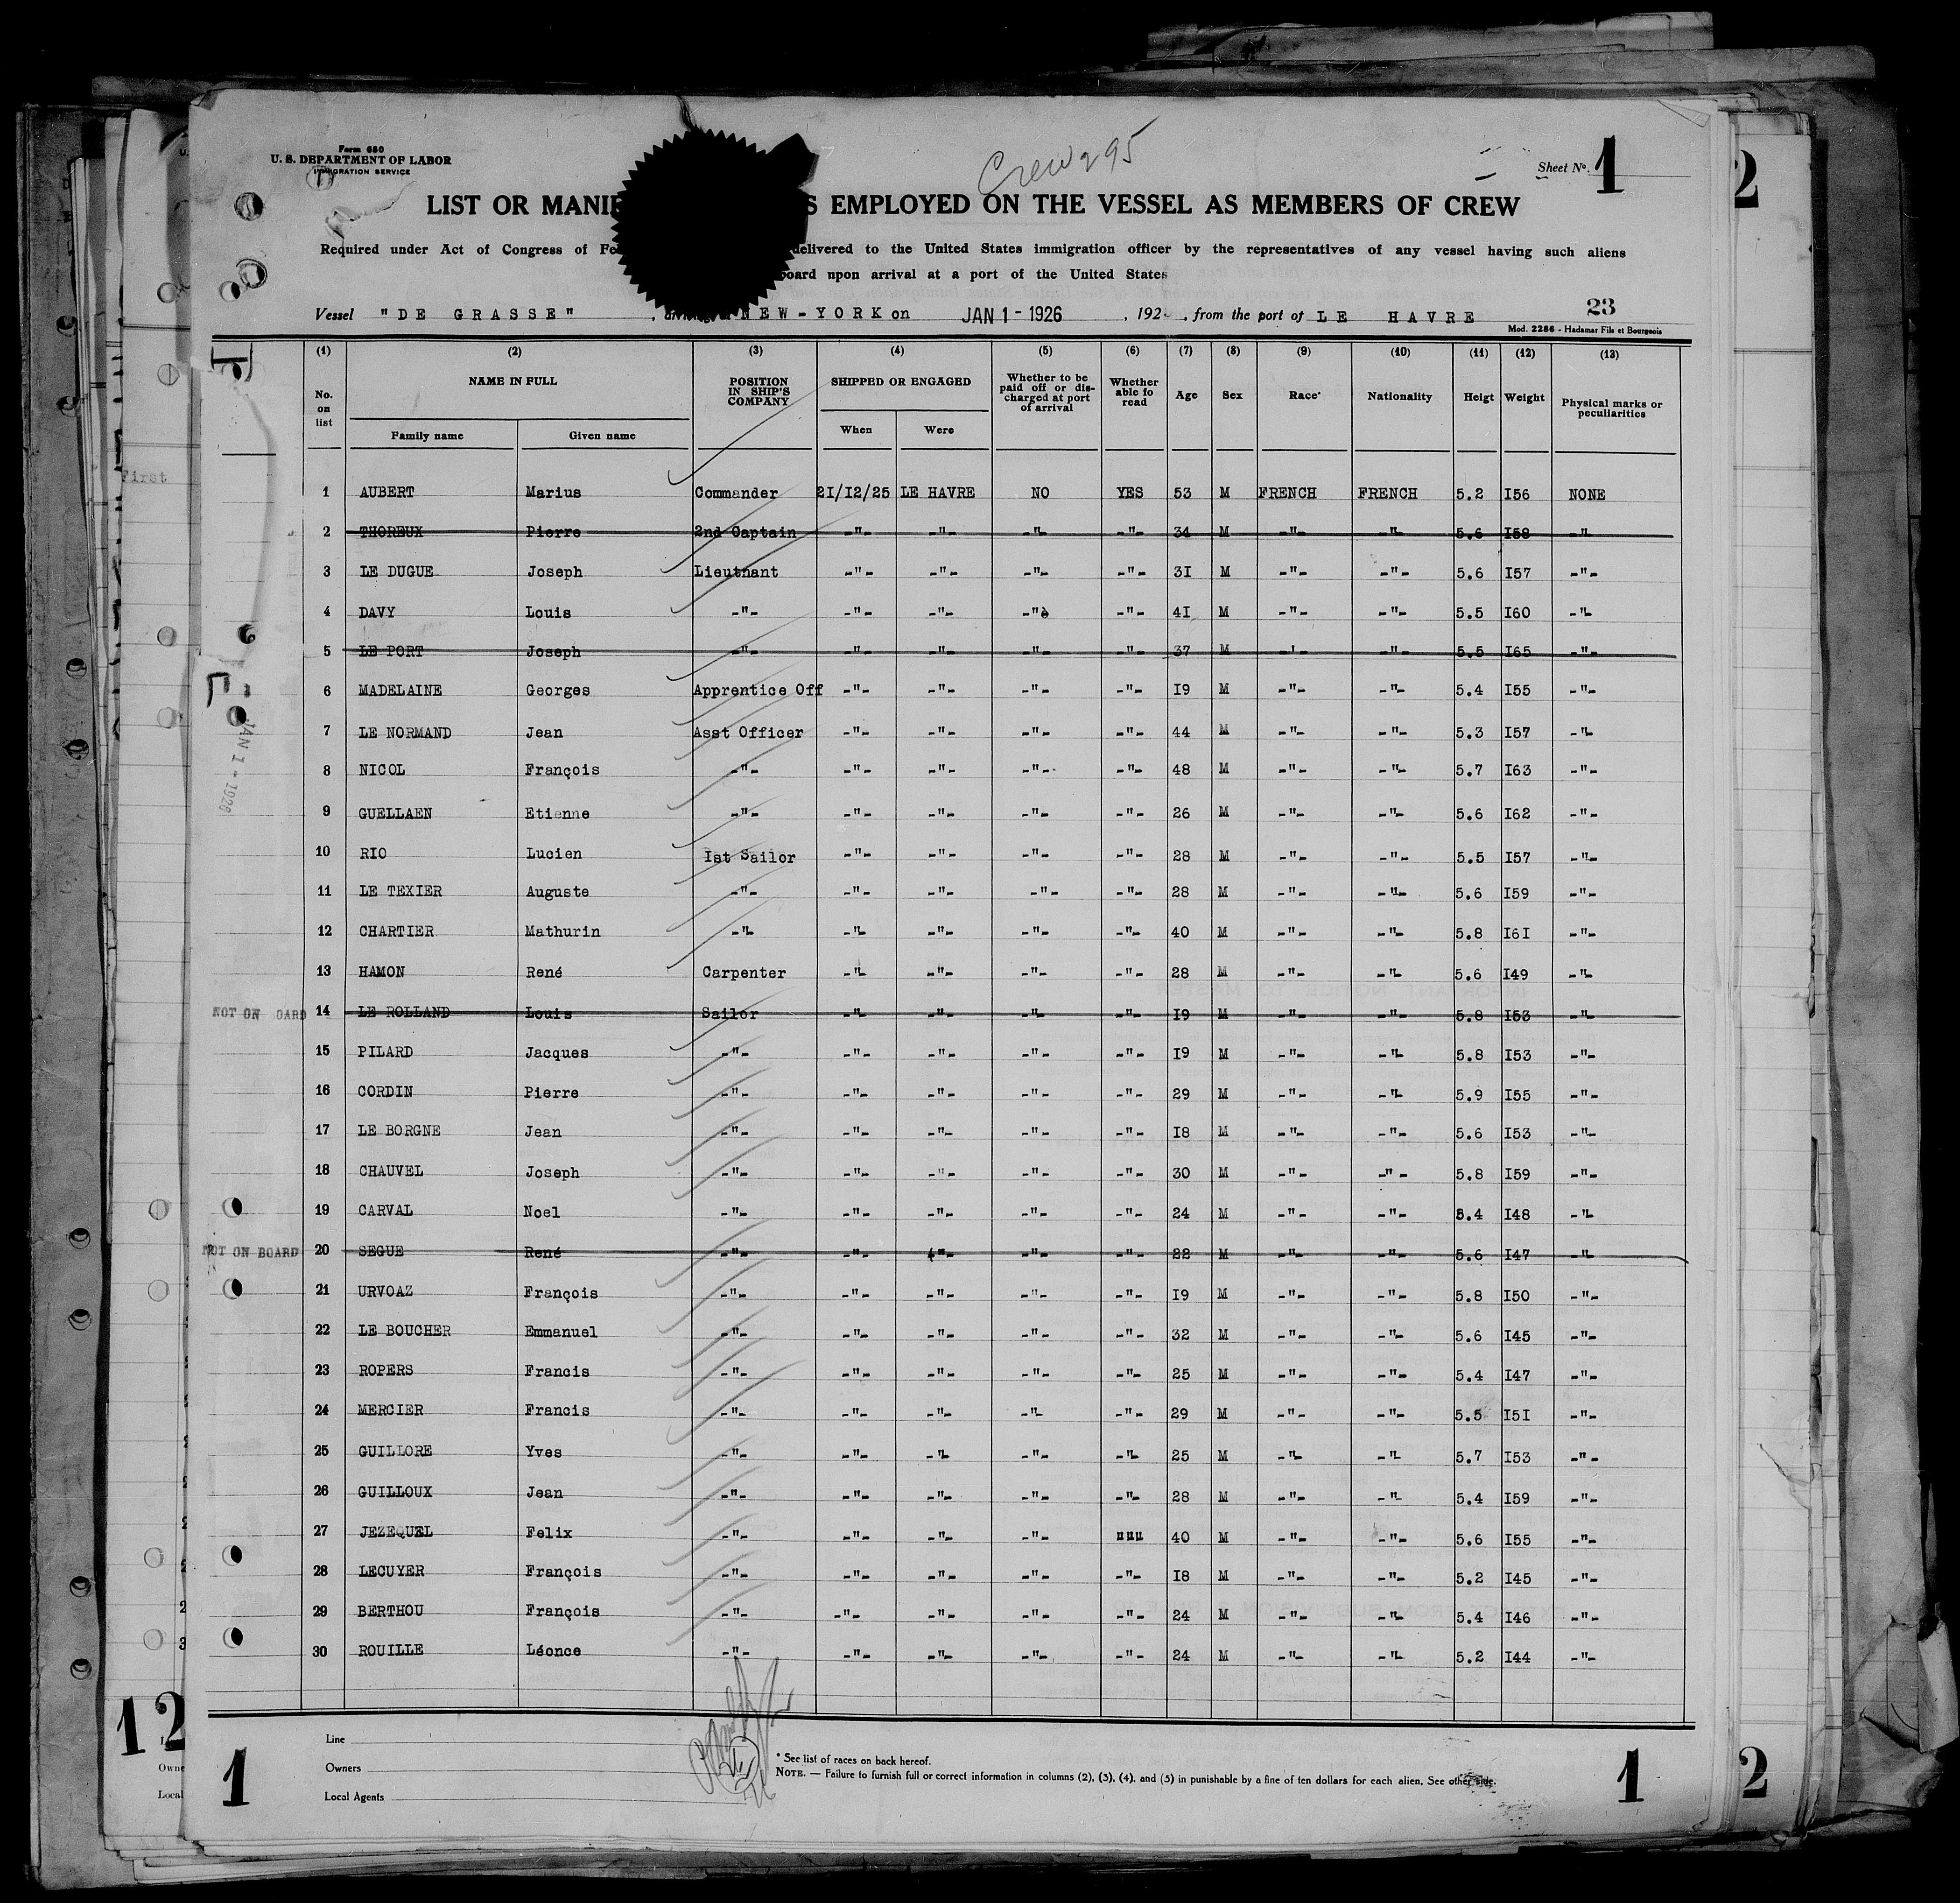 Form 680
U. S. DEPARTMENT OF LABOR
IMMIGRATION SERVICE
Crew 295
Sheet No. 1
2
LIST OR MANIF S EMPLOYED ON THE VESSEL AS MEMBERS OF CREW
Required under Act of Congress of Fe delivered to the United States immigration officer by the representatives of any vessel having such aliens
board upon arrival at a port of the United States
23
Vessel "DE GRASSE", NEW-YORK on JAN 1 - 1926, 192 , from the port of LE HAVRE
Mod. 2286 - Hadamar Fils et Bourgeois
(1) (2) (3) (4) (5) (6) (7) (8) (9) (10) (11) (12) (13)
No. on list NAME IN FULL POSITION IN SHIP'S COMPANY SHIPPED OR ENGAGED Whether to be paid off or discharged at port of arrival Whether able fo read Age Sex Race* Nationality Heigt Weight Physical marks or peculiarities
Family name Given name When Were
First
1 AUBERT Marius Commander 2I/I2/25 LE HAVRE NO YES 53 M FRENCH FRENCH 5.2 I56 NONE
2 THOREUX Pierre 2nd Captain -"- -"- -"- -"- 34 M -"- -"- 5.6 I58 -"-
3 LE DUGUE Joseph Lieutnant -"- -"- -"- -"- 3I M -"- -"- 5.6 I57 -"-
4 DAVY Louis -"- -"- -"- -"- -"- 4I M -"- -"- 5.5 I60 -"-
5 LE PORT Joseph -"- -"- -"- -"- -"- 37 M -'- -"- 5.5 I65 -"-
6 MADELAINE Georges Apprentice Off -"- -"- -"- -"- I9 M -"- -"- 5.4 I55 -"-
7 LE NORMAND Jean Asst Officer -"- -"- -"- -"- 44 M -"- -"- 5.3 I57 -"-
8 NICOL François -"- -"- -"- -"- -"- 48 M -"- -"- 5.7 I63 -"-
9 GUELLAEN Etienne -"- -"- -"- -"- -"- 26 M -"- -"- 5.6 I62 -"-
10 RIO Lucien Ist Sailor -"- -"- -"- -"- 28 M -"- -"- 5.5 I57 -"-
11 LE TEXIER Auguste -"- -"- -"- -"- -"- 28 M -"- -"- 5.6 I59 -"-
12 CHARTIER Mathurin -"- -"- -"- -"- -"- 40 M -"- -"- 5.8 I6I -"-
13 HAMON René Carpenter -"- -"- -"- -"- 28 M -"- -"- 5.6 I49 -"-
NOT ON OARD 14 LE ROLLAND Louis Sailor -"- -"- -"- -"- I9 M -"- -"- 5.8 I53 -"-
15 PILARD Jacques -"- -"- -"- -"- -"- I9 M -"- -"- 5.8 I53 -"-
16 CORDIN Pierre -"- -"- -"- -"- -"- 29 M -"- -"- 5.9 I55 -"-
17 LE BORGNE Jean -"- -"- -"- -"- -"- I8 M -"- -"- 5.6 I53 -"-
18 CHAUVEL Joseph -"- -"- -"- -"- -"- 30 M -"- -"- 5.8 I59 -"-
19 CARVAL Noel -"- -"- -"- -"- -"- 24 M -"- -"- 5.4 I48 -"-
NOT ON BOARD 20 SEGUE René -"- -"- -"- -"- -"- 22 M -"- -"- 5.6 I47 -"-
21 URVOAZ François -"- -"- -"- -"- -"- I9 M -"- -"- 5.8 I50 -"-
22 LE BOUCHER Emmanuel -"- -"- -"- -"- -"- 32 M -"- -"- 5.6 I45 -"-
23 ROPERS Francis -"- -"- -"- -"- -"- 25 M -"- -"- 5.4 I47 -"-
24 MERCIER Francis -"- -"- -"- -"- -"- 29 M -"- -"- 5.5 I5I -"-
25 GUILLORE Yves -"- -"- -"- -"- -"- 25 M -"- -"- 5.7 I53 -"-
26 GUILLOUX Jean -"- -"- -"- -"- -"- 28 M -"- -"- 5.4 I59 -"-
27 JEZEQUEL Felix -"- -"- -"- -"- """ 40 M -"- -"- 5.6 I55 -"-
28 LECUYER François -"- -"- -"- -"- -"- I8 M -"- -"- 5.2 I45 -"-
29 BERTHOU François -"- -"- -"- -"- -"- 24 M -"- -"- 5.4 I46 -"-
30 ROUILLE Léonce -"- -"- -"- -"- -"- 24 M -"- -"- 5.2 I44 -"-
JAN 1 - 1926
Line
Owners
Local Agents
* See list of races on back hereof.
NOTE. — Failure to furnish full or correct information in columns (2), (3), (4), and (5) in punishable by a fine of ten dollars for each alien. See other side.
12
Owne
Local
1
1
2